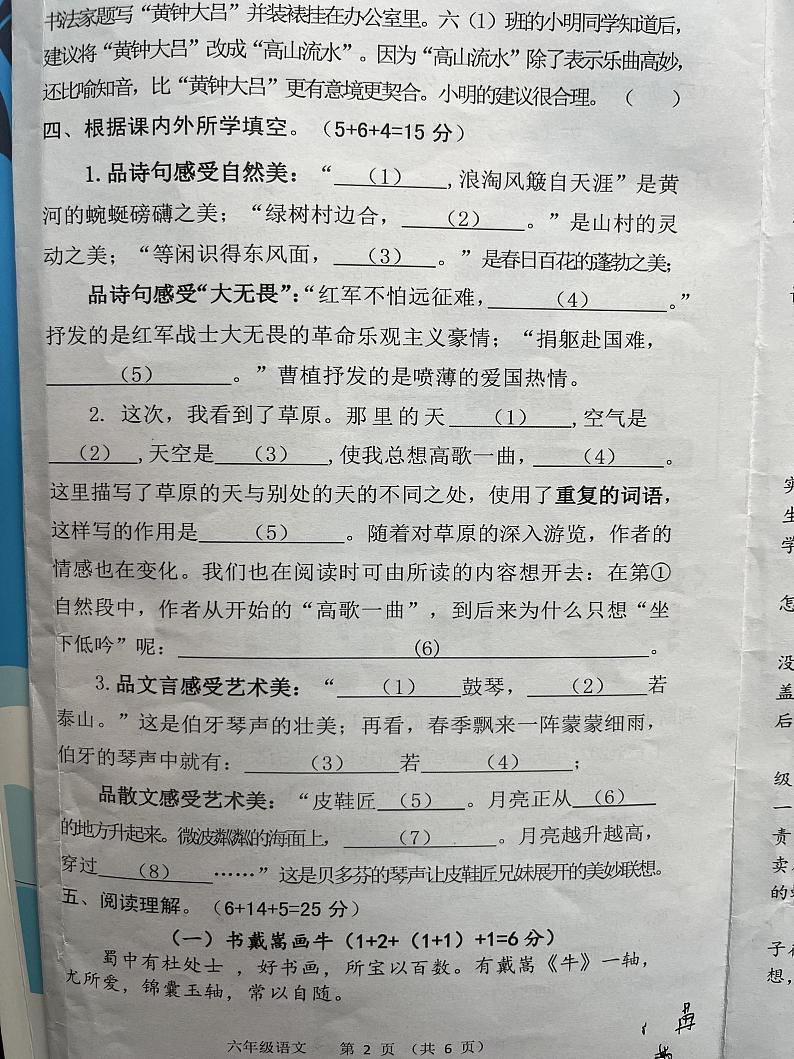 书法家题写“黄钟大吕”并装裱挂在办公室里。六（1）班的小明同学知道后，
建议将“黄钟大吕”改成“高山流水”。因为“高山流水”除了表示乐曲高妙，
还比喻知音，比“黄钟大吕”更有意境更契合。小明的建议很合理。（　　）
四、根据课内外所学填空。（5+6+4=15 分）
1.品诗句感受自然美：“　（1）　,浪淘风簸自天涯”是黄
河的蜿蜒磅礴之美；“绿树村边合，　（2）　。”是山村的灵
动之美；“等闲识得东风面，　（3）　。”是春日百花的蓬勃之美；
品诗句感受“大无畏”：“红军不怕远征难，　（4）　。”
抒发的是红军战士大无畏的革命乐观主义豪情；“捐躯赴国难，
（5）　。”曹植抒发的是喷薄的爱国热情。
2. 这次，我看到了草原。那里的天　（1）　,空气是
（2）　,天空是　（3）　,使我总想高歌一曲，　（4）　。
这里描写了草原的天与别处的天的不同之处，使用了重复的词语，
这样写的作用是　（5）　。随着对草原的深入游览，作者的
情感也在变化。我们也在阅读时可由所读的内容想开去：在第①
自然段中，作者从开始的“高歌一曲”，到后来为什么只想“坐
下低吟”呢：　(6)　。
3.品文言感受艺术美：“　（1）　鼓琴，　（2）　若
泰山。”这是伯牙琴声的壮美；再看，春季飘来一阵蒙蒙细雨，
伯牙的琴声中就有：　（3）　若　（4）　；
品散文感受艺术美：“皮鞋匠　（5）　。月亮正从　（6）
的地方升起来。微波粼粼的海面上，　（7）　。月亮越升越高，
穿过　（8）　……”这是贝多芬的琴声让皮鞋匠兄妹展开的美妙联想。
五、阅读理解。（6+14+5=25 分）
（一）书戴嵩画牛（1+2+（1+1）+1=6 分）
蜀中有杜处士，好书画，所宝以百数。有戴嵩《牛》一轴，
尤所爱，锦囊玉轴，常以自随。
六年级语文　第 2 页　（共 6 页）
实
生
学
怎
没
盖
后
级
一
责
卖
的
子
想，